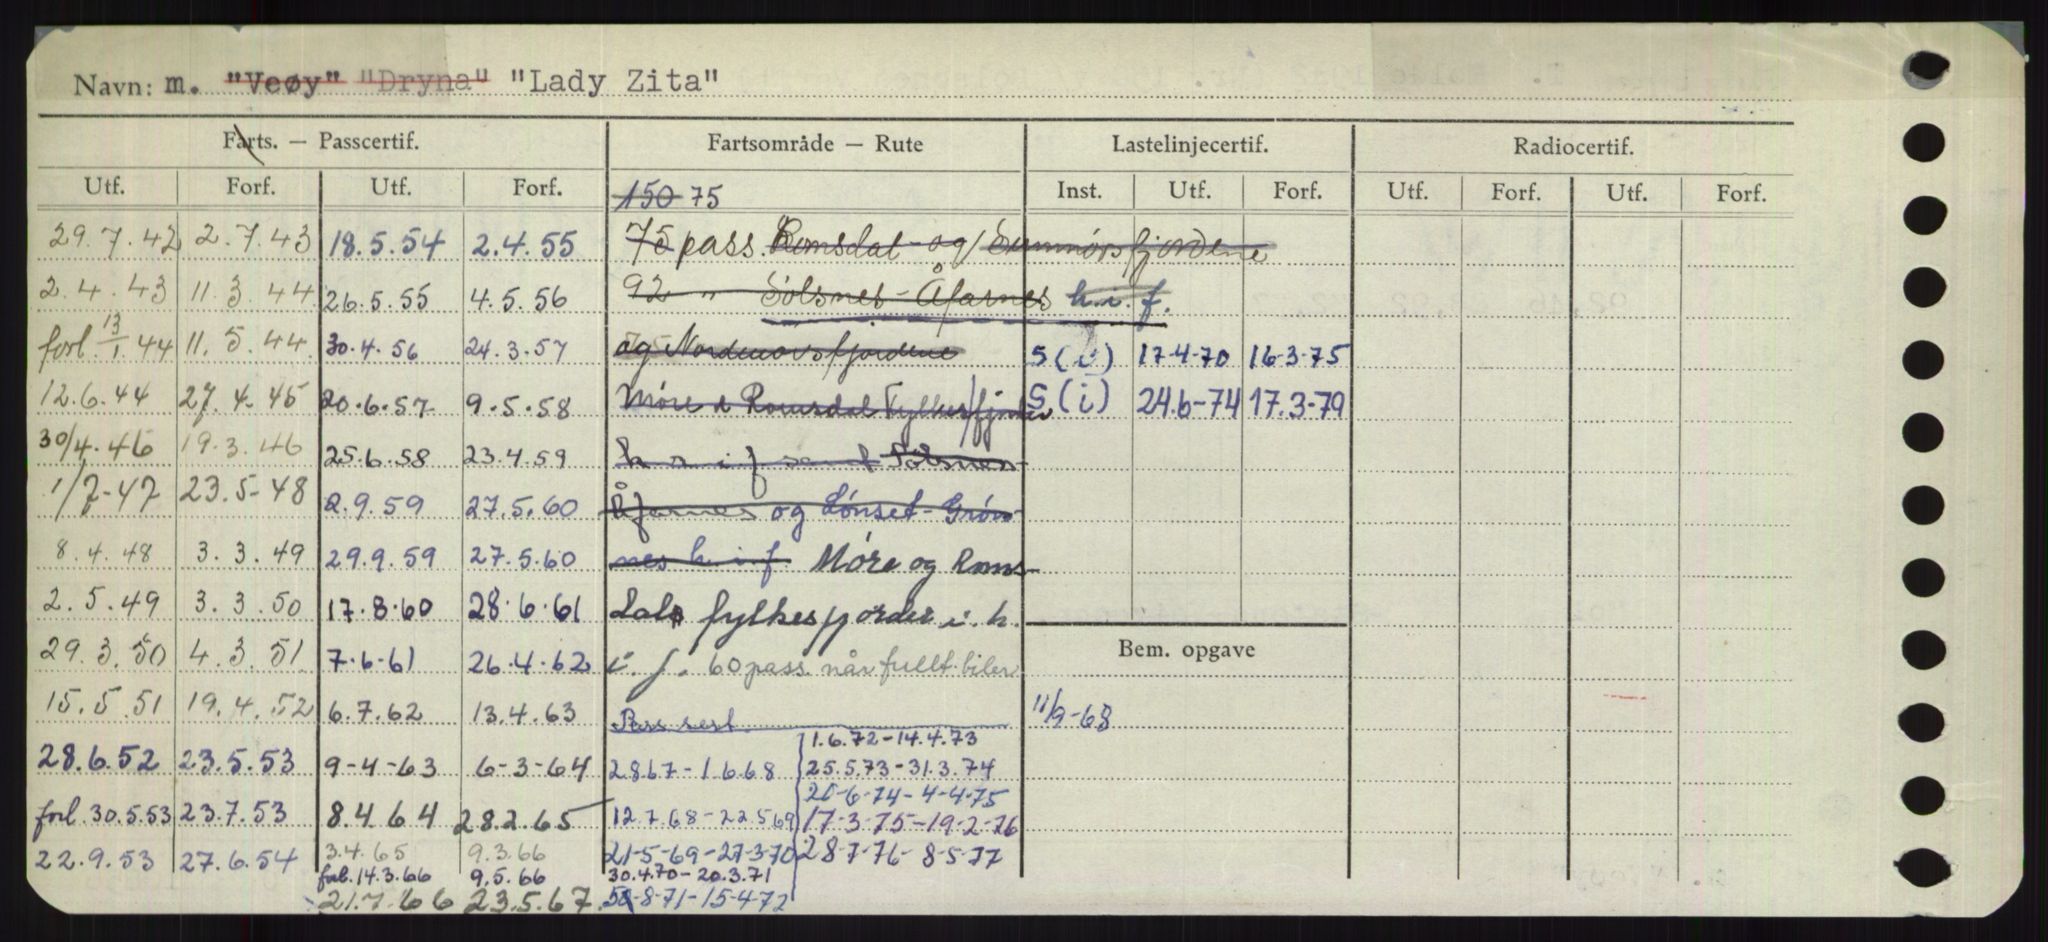 Navn: m. "Veøy" "Dryna" "Lady Zita"
Farts. — Passcertif. Fartsområde — Rute Lastelinjecertif. Radiocertif.
Utf. Forf. Utf. Forf. 150 75 Inst. Utf. Forf. Utf. Forf. Utf. Forf.
29.7.42 2.7.43 18.5.54 2.4.55 75 pass. Romsdal- og Sunnmørsfjordene
2.4.43 11.3.44 26.5.55 4.5.56 92 " Sølsnes-Åfarnes h.i.f.
forl. 13/1 44 11.5.44 30.4.56 24.3.57 og Nordmørsfjordene S (i) 17-4-70 16-3-75
12.6.44 27.4.45 20.6.57 9.5.58 Møre & Romsdal Fylkes fjorder S (i) 24.6-74 17.3-79
30/4.46 19.3.46 25.6.58 23.4.59 h n i f samt Sølsnes-
1/7-47 23.5-48 2.9.59 27.5.60 Åfarnes og Lønset-Grøn-
8.4.48 3.3.49 29.9.59 27.5.60 nes h.i.f. Møre og Roms-
2.5.49 3.3.50 17.8.60 28.6.61 dals fylkesfjorder i. h.
29.3.50 4.3.51 7.6-61 26.4.62 i. f. 60 pass. når fullt biler
Bem. opgave
15.5.51 19.4.52 6.7.62 13.4.63 Pass sert. 11/9-68
1.6.72-14.4.73
28.6.52 23.5.53 9-4-63 6-3-64 2867-1668 25.5.73-31.3.74
21-6-74-4-4-75
forl. 30.5.53 23.7.53 8.4 64 28.2.65 12.7.68-22.569 17-3-75-19-2-76
22.9.53 27.6.54 3.4.65 9.3.66 21-5-69-27-3-70 28-7-76-8-5-77
forl. 14.3.66 9.5.66 30.4.70-20.3.71
21.7.66 23.5.67 -8-71-15-4-72